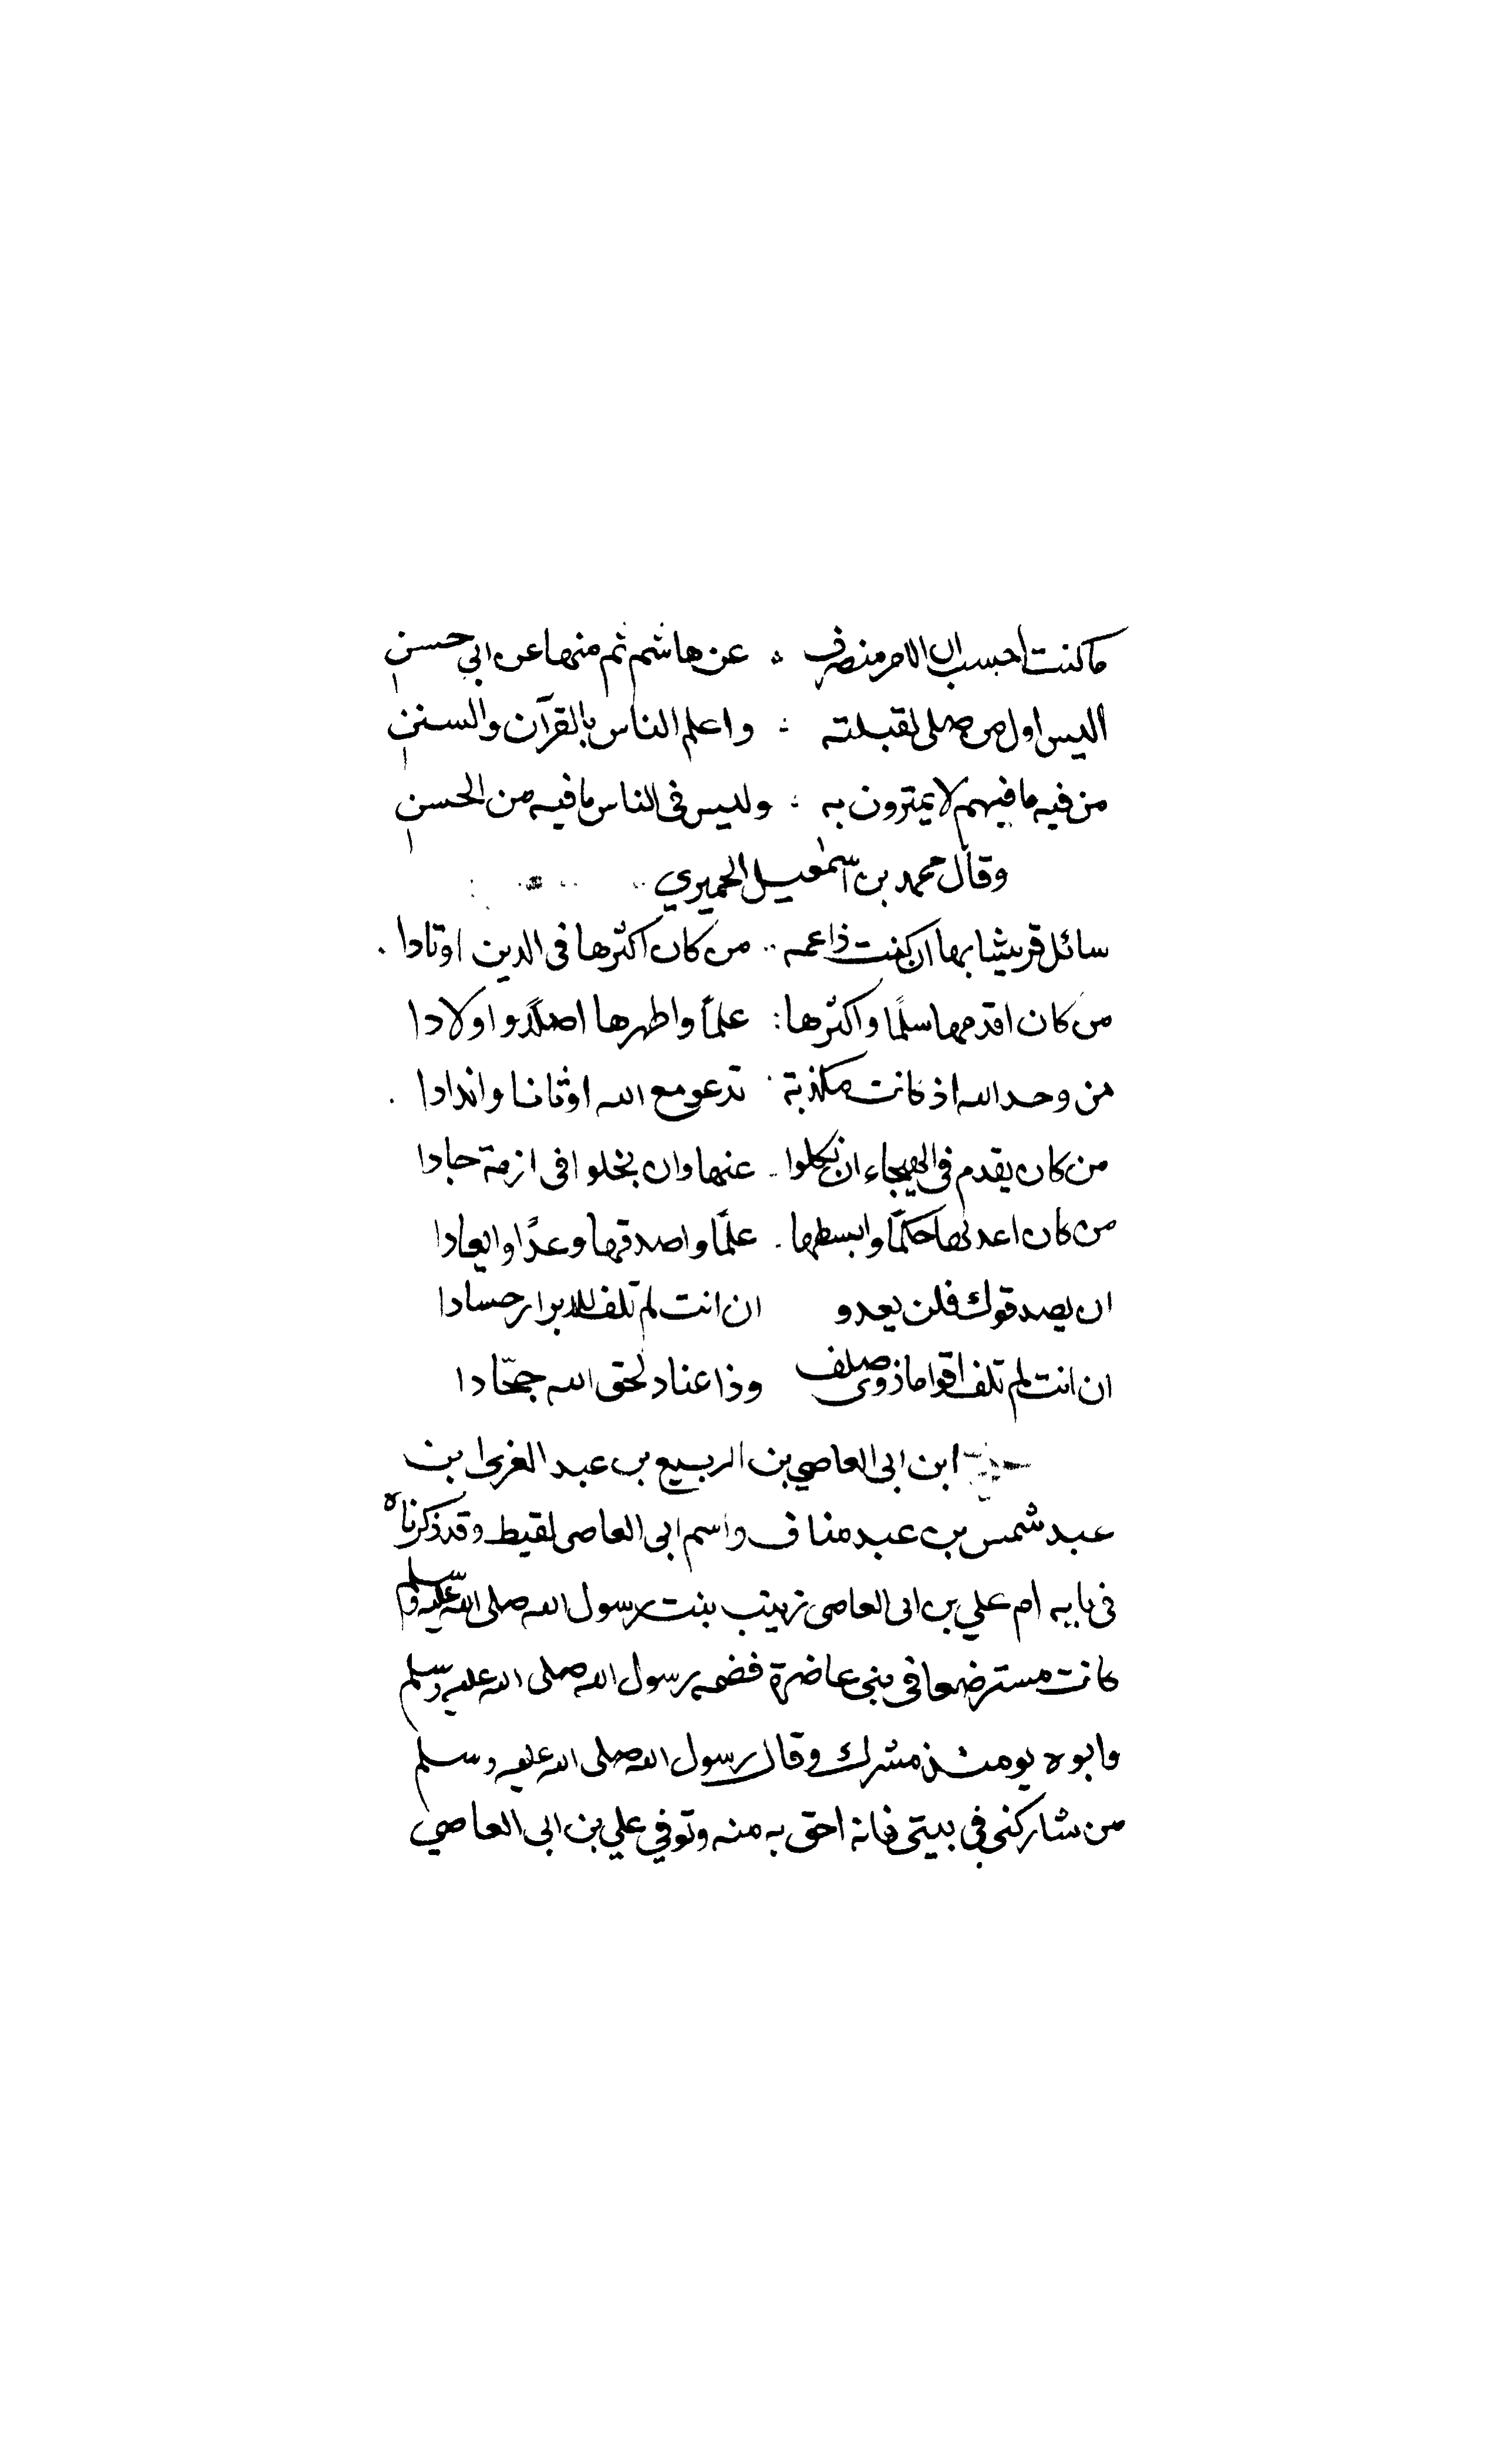 ما كنت احسب ان الامر منصرف ؞ عن هاشم ثم منها عن ابي حسن
اليس اول من صلى لقبلته ؞ واعلم الناس بالقرآن والسنن
من فيه ما فيهم لا يمترون به ؞ وليس فى الناس ما فيه من الحسن
وقال محمد بن اسمعيل الحميري
سائل قريشا بها ان كنت ذا عمه .. من كان اكثرها فى الدين اوتادا .
من كان اقدمها سلمًا واكثرها : علمًا واطهرها اهلًا واولادا
من وحد الله اذ كانت مكذبة . تدعو مع الله اوثانا واندادا .
من كان يقدم فى الهيجاء ان نكلوا . عنها وان بخلوا فى ازمة جادا
من كان اعدلها حكمًا وابسطها . علمًا واصدقها وعدًا وايعادا
ان يصدقوك فلن يعدو ان انت لم تلف للابرار حسادا
ان انت لم تلف اقواما ذوى صلف وذا عناد لحق الله جحّادا
ابن ابى العاصي بن الربيع بن عبد العزى بن
عبد شمس بن عبد مناف واسم ابى العاصى لقيط وقد ذكرناه
فى بابه ام علي بن ابى العاصى زينب بنت رسول الله صلى الله عليه وسلم
كانت مسترضعا فى بنى غاضرة فضمه رسول الله صلى الله عليه وسلم
وابوه يومئذ مشرك وقال رسول الله صلى الله عليه وسلم
من شاركنى فى بيتى فانه احق به منه وتوفي علي بن ابى العاصي